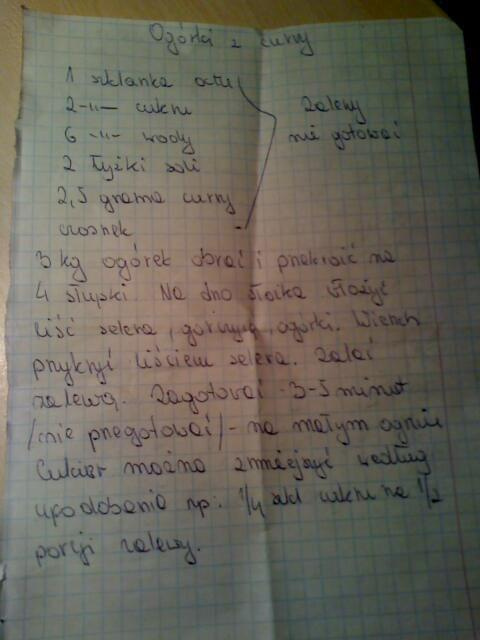 Ogórki z curry
1 szklanka octu
2 -"- cukru
6 -"- wody
2 łyżki soli
2,5 grama curry
czosnek
Zalewy
nie gotować
3 kg ogórek obrać i przekroić na
4 słupki. Na dno słoika włożyć
liść selera, gorczycę, ogórki. Wierzch
przykryć liściem selera. Zalać
zalewą. Zagotować 3-5 minut
/nie przegotować/ - na małym ogniu
Cukier można zmniejszyć według
upodobania np: 1/4 szkl cukru na 1/2
porcji zalewy.